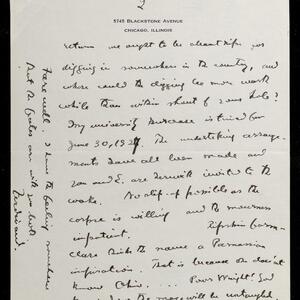 2
5745 BLACKSTONE AVENUE
CHICAGO, ILLINOIS
return we ought to be about ripe for
digging in somewhere in the country, and
where could the digging be more worth
while than within shout of
My university is timed for
June 30, 1927. The undertaking arrange-
ments have all been made and
you and E. are herewith invited to the
No slip-up possible as the
corpse is willing and the mourners
impatient.
clare finds the name a Permanian
inspiration. That is because she doesn't
know Ohio. ... Poor Wright! God
knows how the mess will be untangled.
Farewell. I have the feeling somehow
that the fates are with you both
Ferdinand.